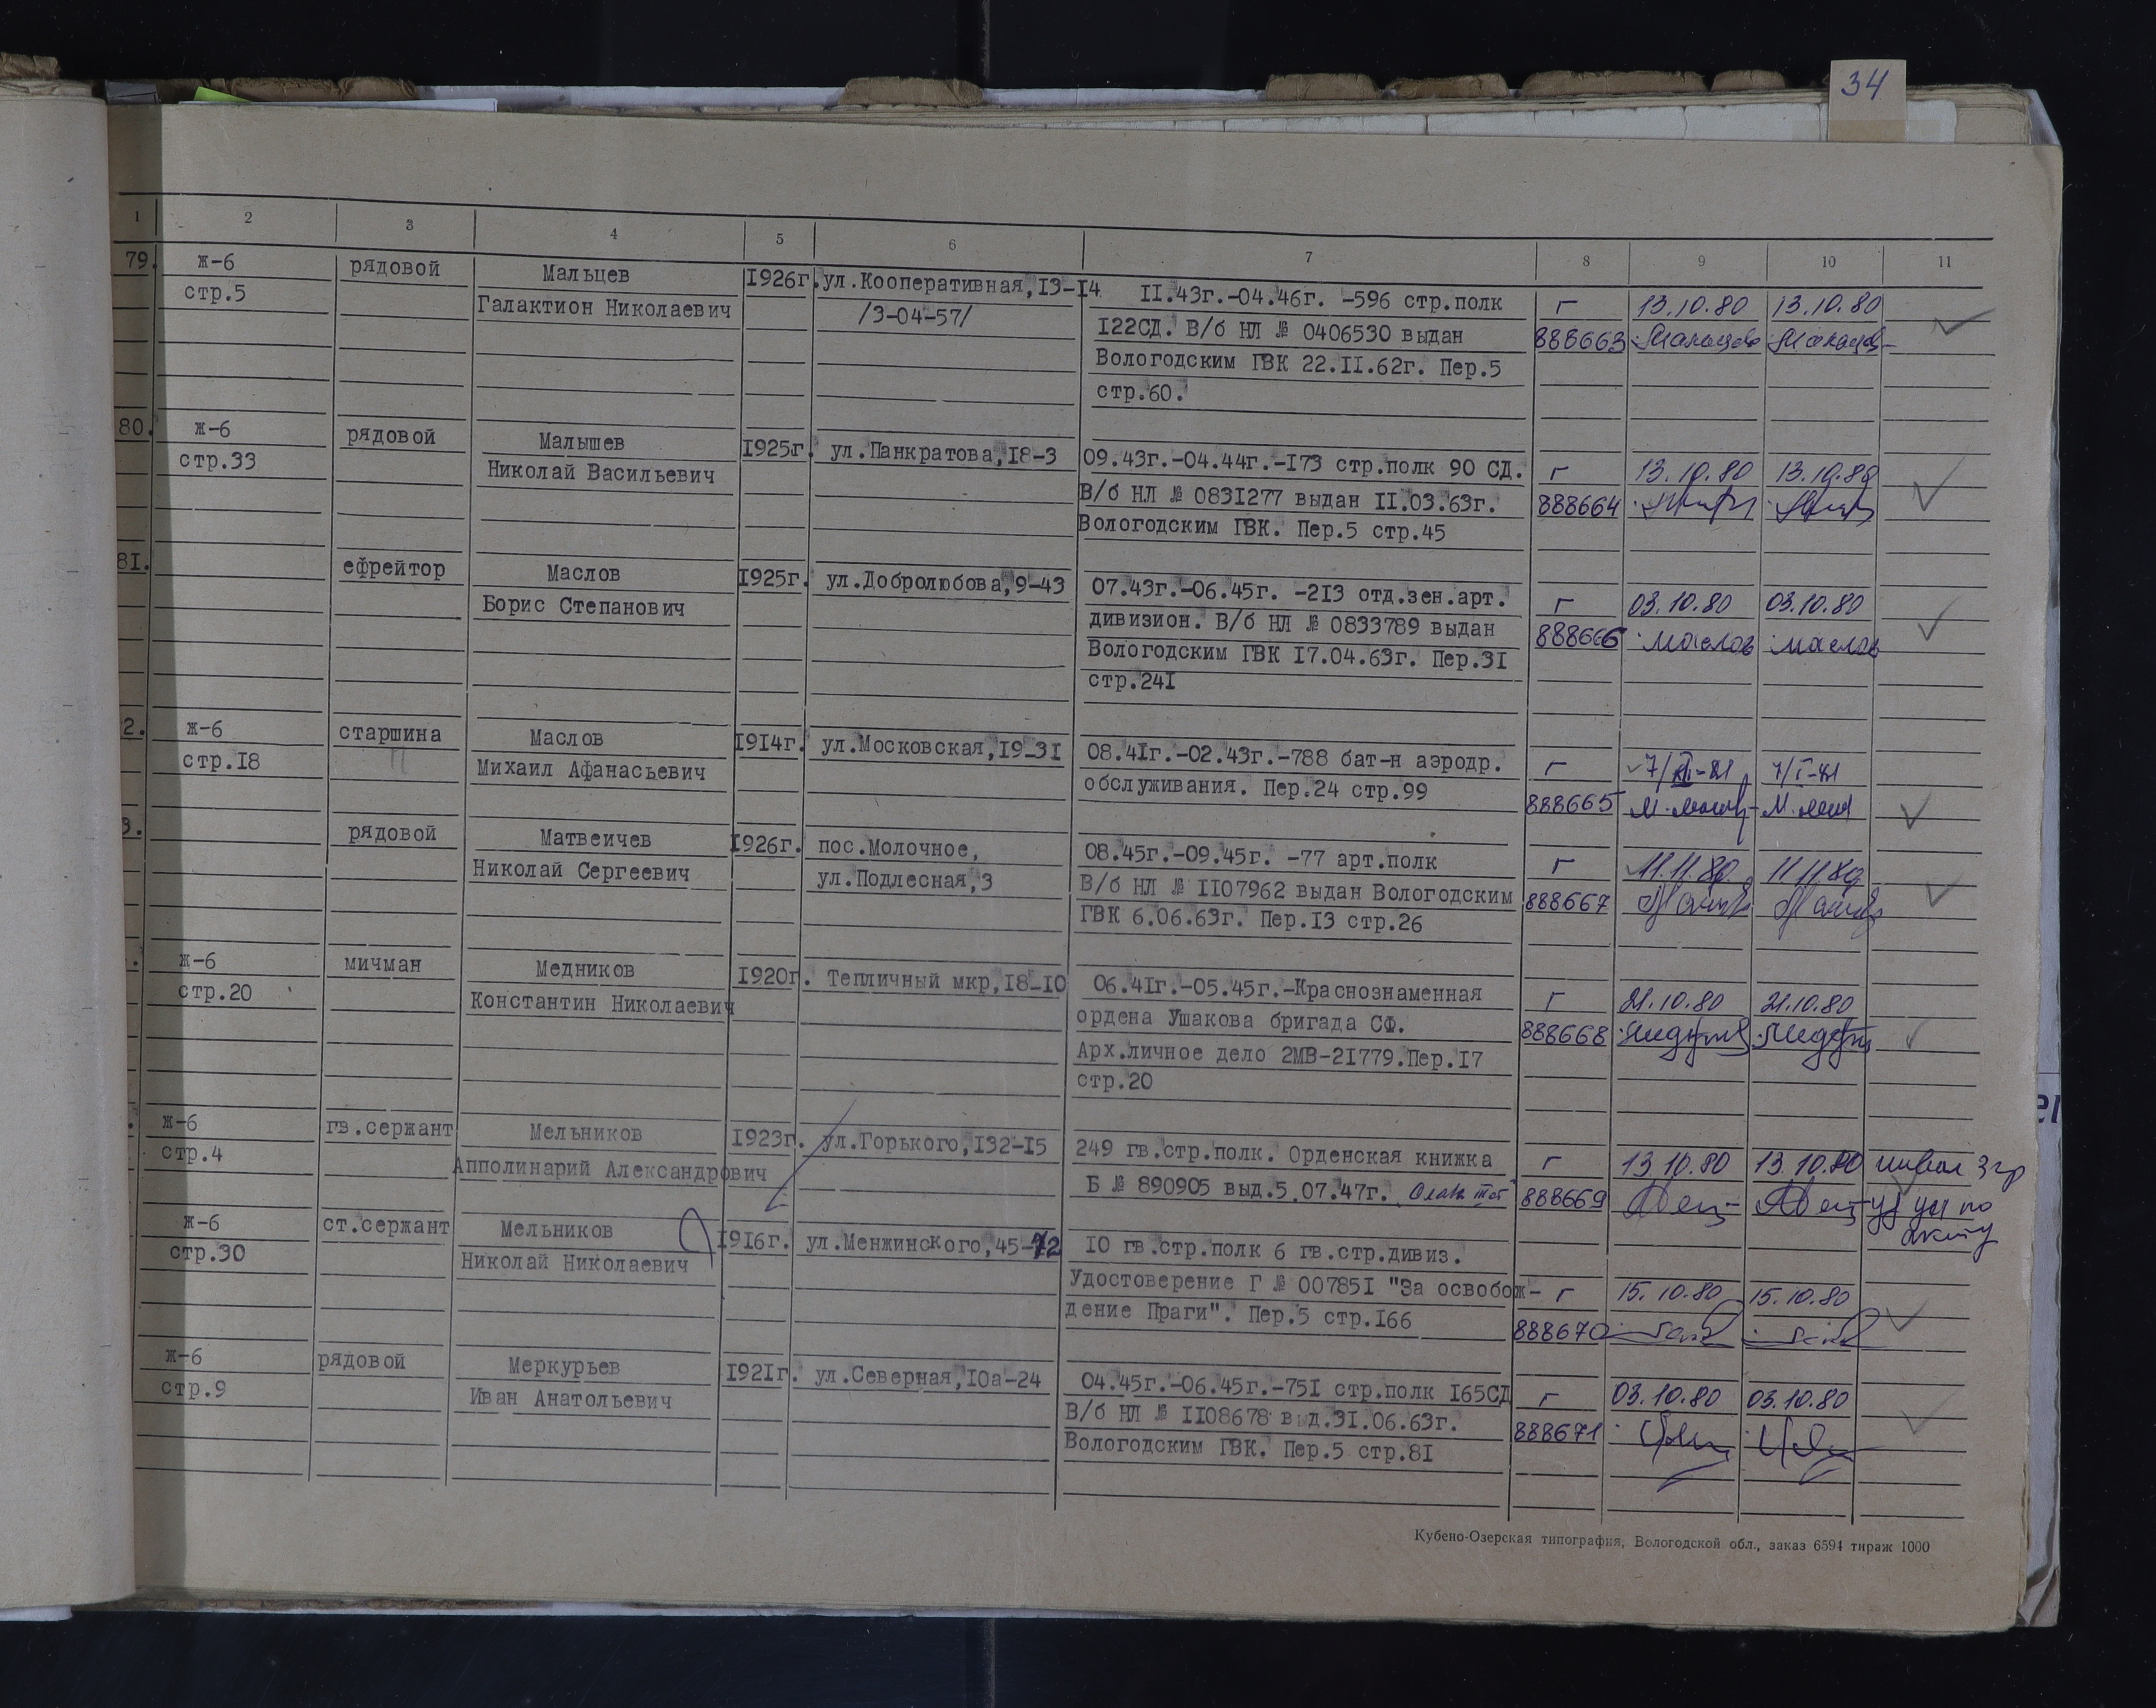 34
1 2 3 4 5 6 7 8 9 10 11
79. ж-6 рядовой Мальцев 1926г. ул.Кооперативная,13-14 11.43г.-04.46г. -596 стр.полк г 13.10.80 13.10.80
стр.5 Галактион Николаевич /3-04-57/ 122СД. В/б НЛ № 0406530 выдан 888663
Вологодским ГВК 22.11.62г. Пер.5
стр.60.
80. ж-6 рядовой Малышев 1925г. ул.Панкратова,18-3 09.43г.-04.44г.-173 стр.полк 90 СД. г 13.10.80 13.10.80
стр.33 Николай Васильевич В/б НЛ № 0831277 выдан 11.03.63г. 888664
Вологодским ГВК. Пер.5 стр.45
81. ефрейтор Маслов 1925г. ул.Добролюбова,9-43 07.43г.-06.45г. -213 отд.зен.арт. г 03.10.80 03.10.80
Борис Степанович дивизион. В/б НЛ № 0833789 выдан 888666 Маслов Маслов
Вологодским ГВК 17.04.63г. Пер.31
стр.241
2. ж-6 старшина Маслов 1914г. ул.Московская,19-31 08.41г.-02.43г.-788 бат-н аэродр. г 7/I-81
стр.18 Михаил Афанасьевич обслуживания. Пер.24 стр.99 888665
3. рядовой Матвеичев 1926г. пос.Молочное, 08.45г.-09.45г. -77 арт.полк г 11.11.80 11.11.80
Николай Сергеевич ул.Подлесная,3 В/б НЛ № 1107962 выдан Вологодским 888667
ГВК 6.06.63г. Пер.13 стр.26
. ж-6 мичман Медников 1920г. Тепличный мкр,18-10 06.41г.-05.45г.-Краснознаменная г 21.10.80 21.10.80
стр.20 Константин Николаевич ордена Ушакова бригада СФ. 888668
Арх.личное дело 2МВ-21779.Пер.17
стр.20
. ж-6 гв.сержант Мельников 1923г. ул.Горького,132-15 249 гв.стр.полк. Орденская книжка г 13.10.80 13.10.80 инвал 3 гр
стр.4 Апполинарий Александрович Б № 890905 выд.5.07.47г. Слава 888669
ж-6 ст.сержант Мельников 1916г. ул.Менжинского,45-72 10 гв.стр.полк 6 гв.стр.дивиз.
стр.30 Николай Николаевич Удостоверение Г № 007851 "За освобож- г 15.10.80 15.10.80
дение Праги". Пер.5 стр.166 888670
ж-6 рядовой Меркурьев 1921г. ул.Северная,10а-24 04.45г.-06.45г.-751 стр.полк 165СД г 03.10.80 03.10.80
стр.9 Иван Анатольевич В/б НЛ № 1108678 выд.31.06.63г. 888671
Вологодским ГВК. Пер.5 стр.81
Кубено-Озерская типография, Вологодской обл., заказ 6594 тираж 1000